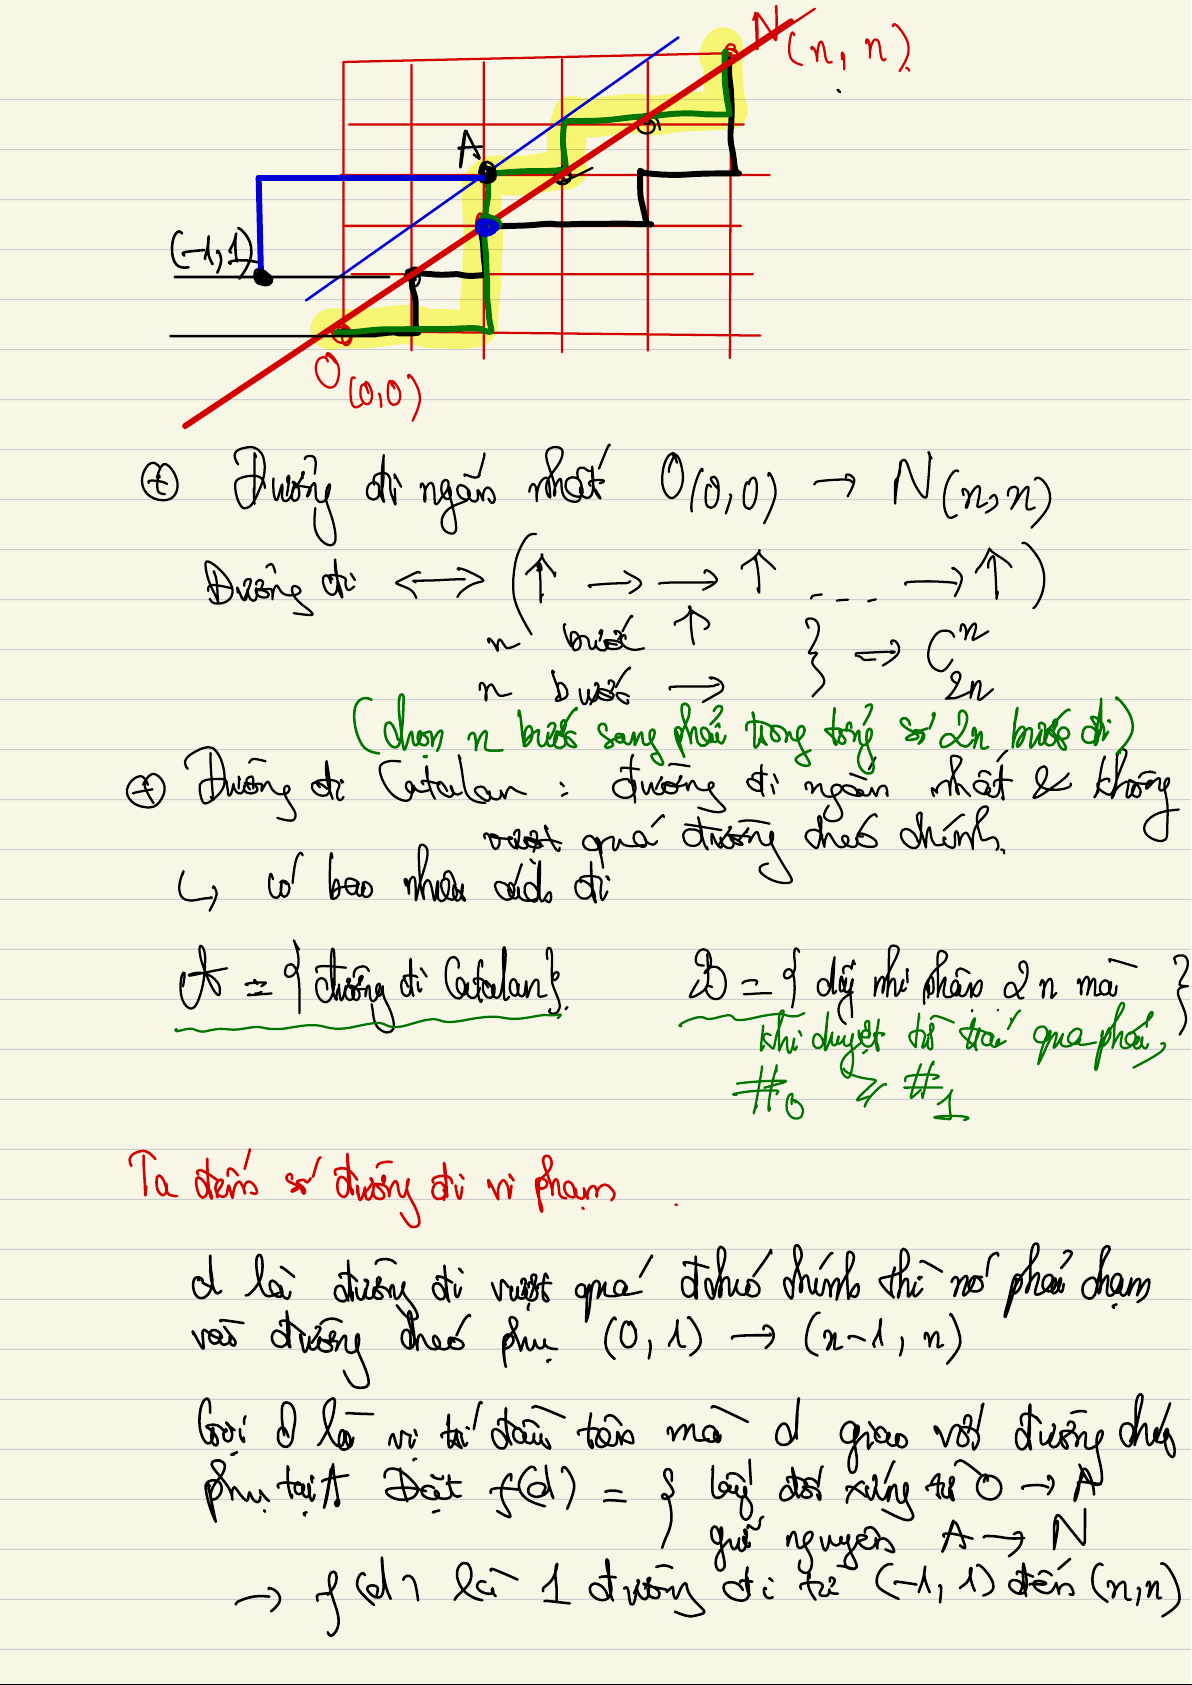 N(n, n)
A
(-1, 1)
O(0,0)
⊕ Đường đi ngắn nhất O(0,0) → N(n,n)
Đường đi ↔ (↑ → → ↑ ... → ↑)
n bước ↑
n bước →
} ⇒ C_{2n}^n
(chọn n bước sang phải trong tổng số 2n bước đi)
⊕ Đường đi Catalan : đường đi ngắn nhất & không
vượt quá đường chéo chính.
↳ có bao nhiêu cách đi
A = {đường đi Catalan}. B = { dãy nhị phân 2n mà }
khi duyệt từ trái qua phải,
#0 ≥ #1
Ta đếm số đường đi vi phạm.
d là đường đi vượt quá đchéo chính thì nó phải chạm
vào đường chéo phụ (0,1) → (n-1, n)
Gọi là vị trí đầu tiên mà d giao với đường chéo
phụ tại A Đặt f(d) = { lấy đối xứng từ O → A
giữ nguyên A → N
→ f(d) là 1 đường đi từ (-1, 1) đến (n,n)